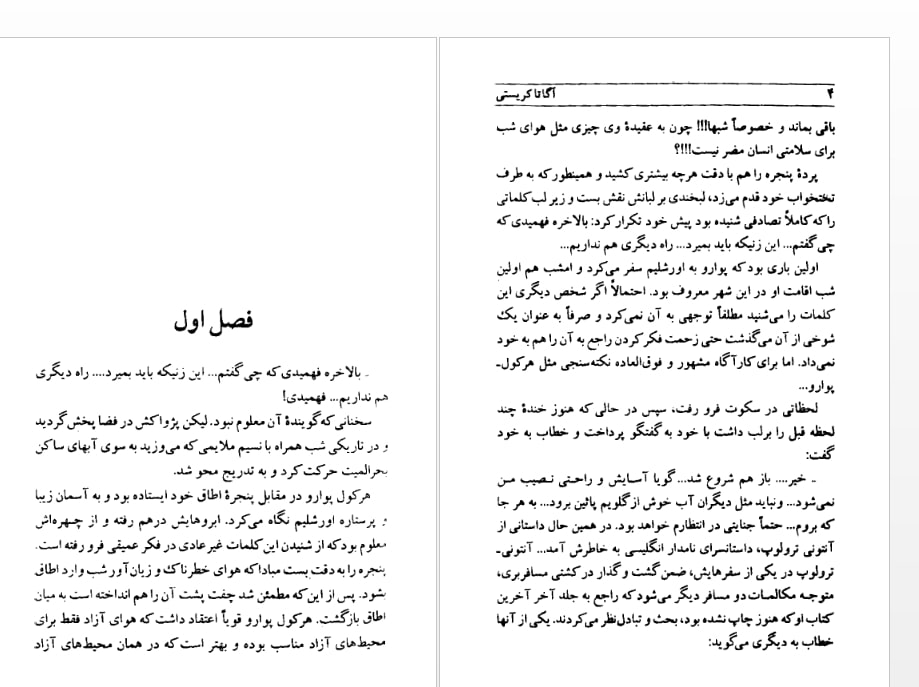 فصل اول
ـ بالاخره فهمیدی که چی‌گفتم... این زنیکه باید بمیرد.... راه دیگری
هم نداریم... فهمیدی!
سخنانی که گویندهٔ آن معلوم نبود. لیکن پژواکش در فضا پخش گردید
و در تاریکی شب همراه با نسیم ملایمی که می‌وزید به سوی آبهای ساکن
بحرالمیت حرکت کرد و به تدریج محو شد.
هرکول پوارو در مقابل پنجرهٔ اطاق خود ایستاده بود و به آسمان زیبا
و پرستاره اورشلیم نگاه می‌کرد. ابروهایش درهم رفته و از چهره‌اش
معلوم بود که از شنیدن این کلمات غیرعادی در فکر عمیقی فرو رفته است.
پنجره را به دقت بست مبادا که هوای خطرناک و زیان‌آور شب وارد اطاق
بشود. پس از این‌که مطمئن شد چفت پشت آن را هم انداخته است به میان
اطاق بازگشت. هرکول پوارو قویاً اعتقاد داشت که هوای آزاد فقط برای
محیط‌های آزاد مناسب بوده و بهتر است که در همان محیط‌های آزاد
۴ آگاتا کریستی
باقی بماند و خصوصاً شبها!!! چون به عقیدهٔ وی چیزی مثل هوای شب
برای سلامتی انسان مضر نیست!!!؟
پردهٔ پنجره را هم با دقت هرچه بیشتری کشید و همینطور که به طرف
تختخواب خود قدم می‌زد، لبخندی بر لبانش نقش بست و زیر لب کلماتی
را که کاملاً تصادفی شنیده بود پیش خود تکرار کرد: بالاخره فهمیدی که
چی‌گفتم... این زنیکه باید بمیرد... راه دیگری هم نداریم...
اولین باری بود که پوارو به اورشلیم سفر می‌کرد و امشب هم اولین
شب اقامت او در این شهر معروف بود. احتمالاً اگر شخص دیگری این
کلمات را می‌شنید مطلقاً توجهی به آن نمی‌کرد و صرفاً به عنوان یک
شوخی از آن می‌گذشت حتی زحمت فکر کردن راجع به آن را هم به خود
نمی‌داد. اما برای کارآگاه مشهور و فوق‌العاده نکته‌سنجی مثل هرکول‌ـ
پوارو...
لحظاتی در سکوت فرو رفت، سپس در حالی که هنوز خندهٔ چند
لحظه قبل را برلب داشت با خود به گفتگو پرداخت و خطاب به خود
گفت:
ـ خیر.... باز هم شروع شد...گویا آسایش و راحتی نصیب من
نمی‌شود... ونباید مثل دیگران آب خوش ازگلویم پائین برود... به هر جا
که بروم... حتماً جنایتی در انتظارم خواهد بود. در همین حال داستانی از
آنتونی ترولوپ، داستانسرای نامدار انگلیسی به خاطرش آمد... آنتونی‌ـ
ترولوپ در یکی از سفرهایش، ضمن گشت و گذار در کشتی مسافربری،
متوجه مکالمات دو مسافر دیگر می‌شود که راجع به جلد آخر آخرین
کتاب او که هنوز چاپ نشده بود، بحث و تبادل‌نظر می‌کردند. یکی از آنها
خطاب به دیگری می‌گوید: